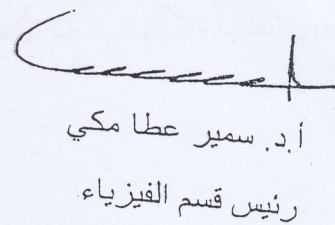 أ.د. سمير عطا مكي
رئيس قسم الفيزياء